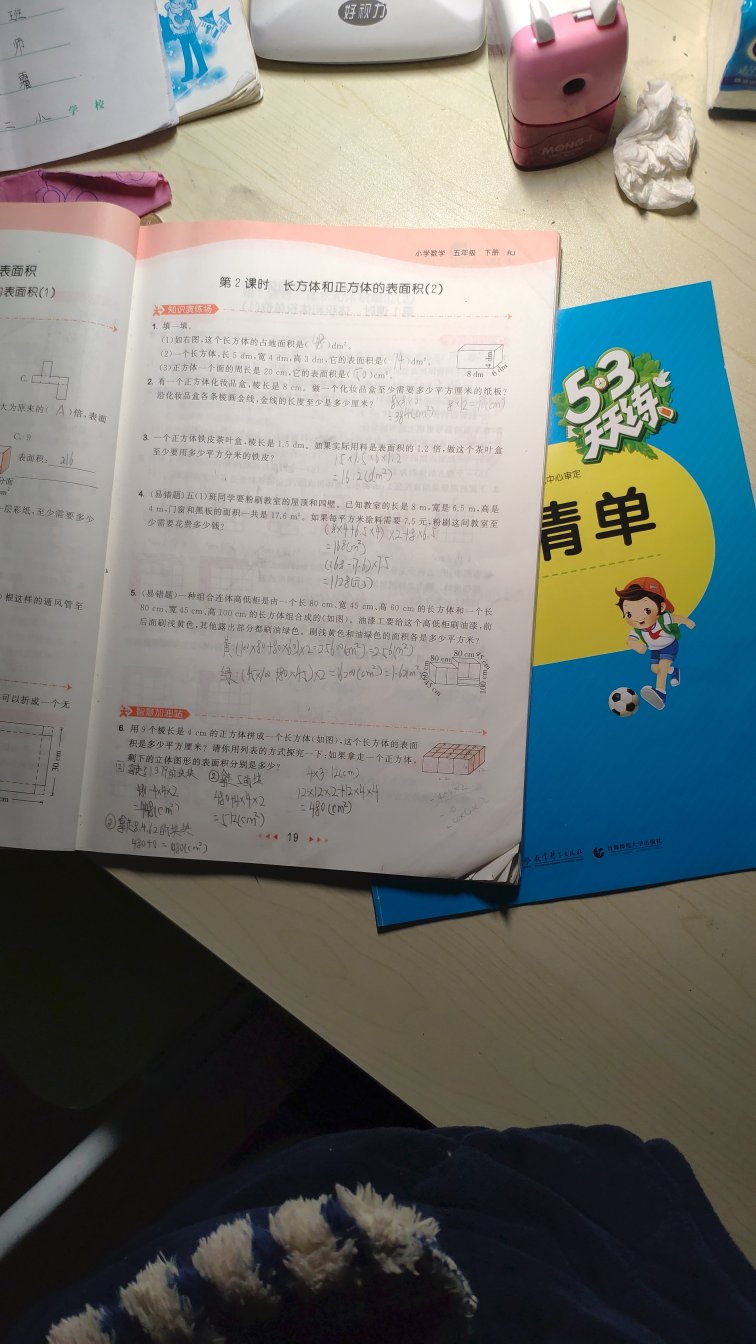 班
师
小 学 校
好视力
MONG-I
表面积
的表面积(1)
C.
大为原来的( A )倍,表面
C. 9
表面积: 216
一层彩纸,至少需要多少
根这样的通风管至
可以折成一个无
30 cm
cm
小学数学 五年级 下册 RJ
第 2 课时 长方体和正方体的表面积(2)
知识演练场
1. 填一填。
(1)如右图,这个长方体的占地面积是( 48 )dm²。
(2)一个长方体,长 5 dm,宽 4 dm,高 3 dm,它的表面积是( 94 )dm²。
(3)正方体一个面的周长是 20 cm,它的表面积是( 150 )cm²。
4 dm
8 dm 6 dm
2. 有一个正方体化妆品盒,棱长是 8 cm。做一个化妆品盒至少需要多少平方厘米的纸板?
沿化妆品盒各条棱画金线,金线的长度至少是多少厘米?
=384(cm²)
3. 一个正方体铁皮茶叶盒,棱长是 1.5 dm。如果实际用料是表面积的 1.2 倍,做这个茶叶盒
至少要用多少平方分米的铁皮?
1.5×1.5×6×1.2
=16.2(dm²)
4. (易错题)五(1)班同学要粉刷教室的屋顶和四壁。已知教室的长是 8 m,宽是 6.5 m,高是
4 m,门窗和黑板的面积一共是 17.6 m²。如果每平方米涂料需要 7.5 元,粉刷这间教室至
少需要花费多少钱?
(8×4+6.5×4)×2+8×6.5
=168(m²)
(168-17.6)×7.5
=1128(元)
5. (易错题)一种组合连体高低柜是由一个长 80 cm、宽 45 cm、高 60 cm 的长方体和一个长
80 cm、宽 45 cm、高 100 cm 的长方体组合成的(如图)。油漆工要给这个高低柜刷油漆,前
后面刷浅黄色,其他露出部分都刷油绿色。刷浅黄色和油绿色的面积各是多少平方米?
80 cm
80 cm
45 cm
100 cm
45 cm
智慧加油站
6. 用 9 个棱长是 4 cm 的正方体拼成一个长方体(如图),这个长方体的表面
积是多少平方厘米? 请你用列表的方式探究一下:如果拿走一个正方体,
剩下的立体图形的表面积分别是多少?
4×3=12(cm)
12×12×2+12×4×4
=480(cm²)
480+4×4×2
=512(cm²)
480+0=480(cm²)
19
5·3
天天练
中心审定
清单
教育科学出版社
首都师范大学出版社